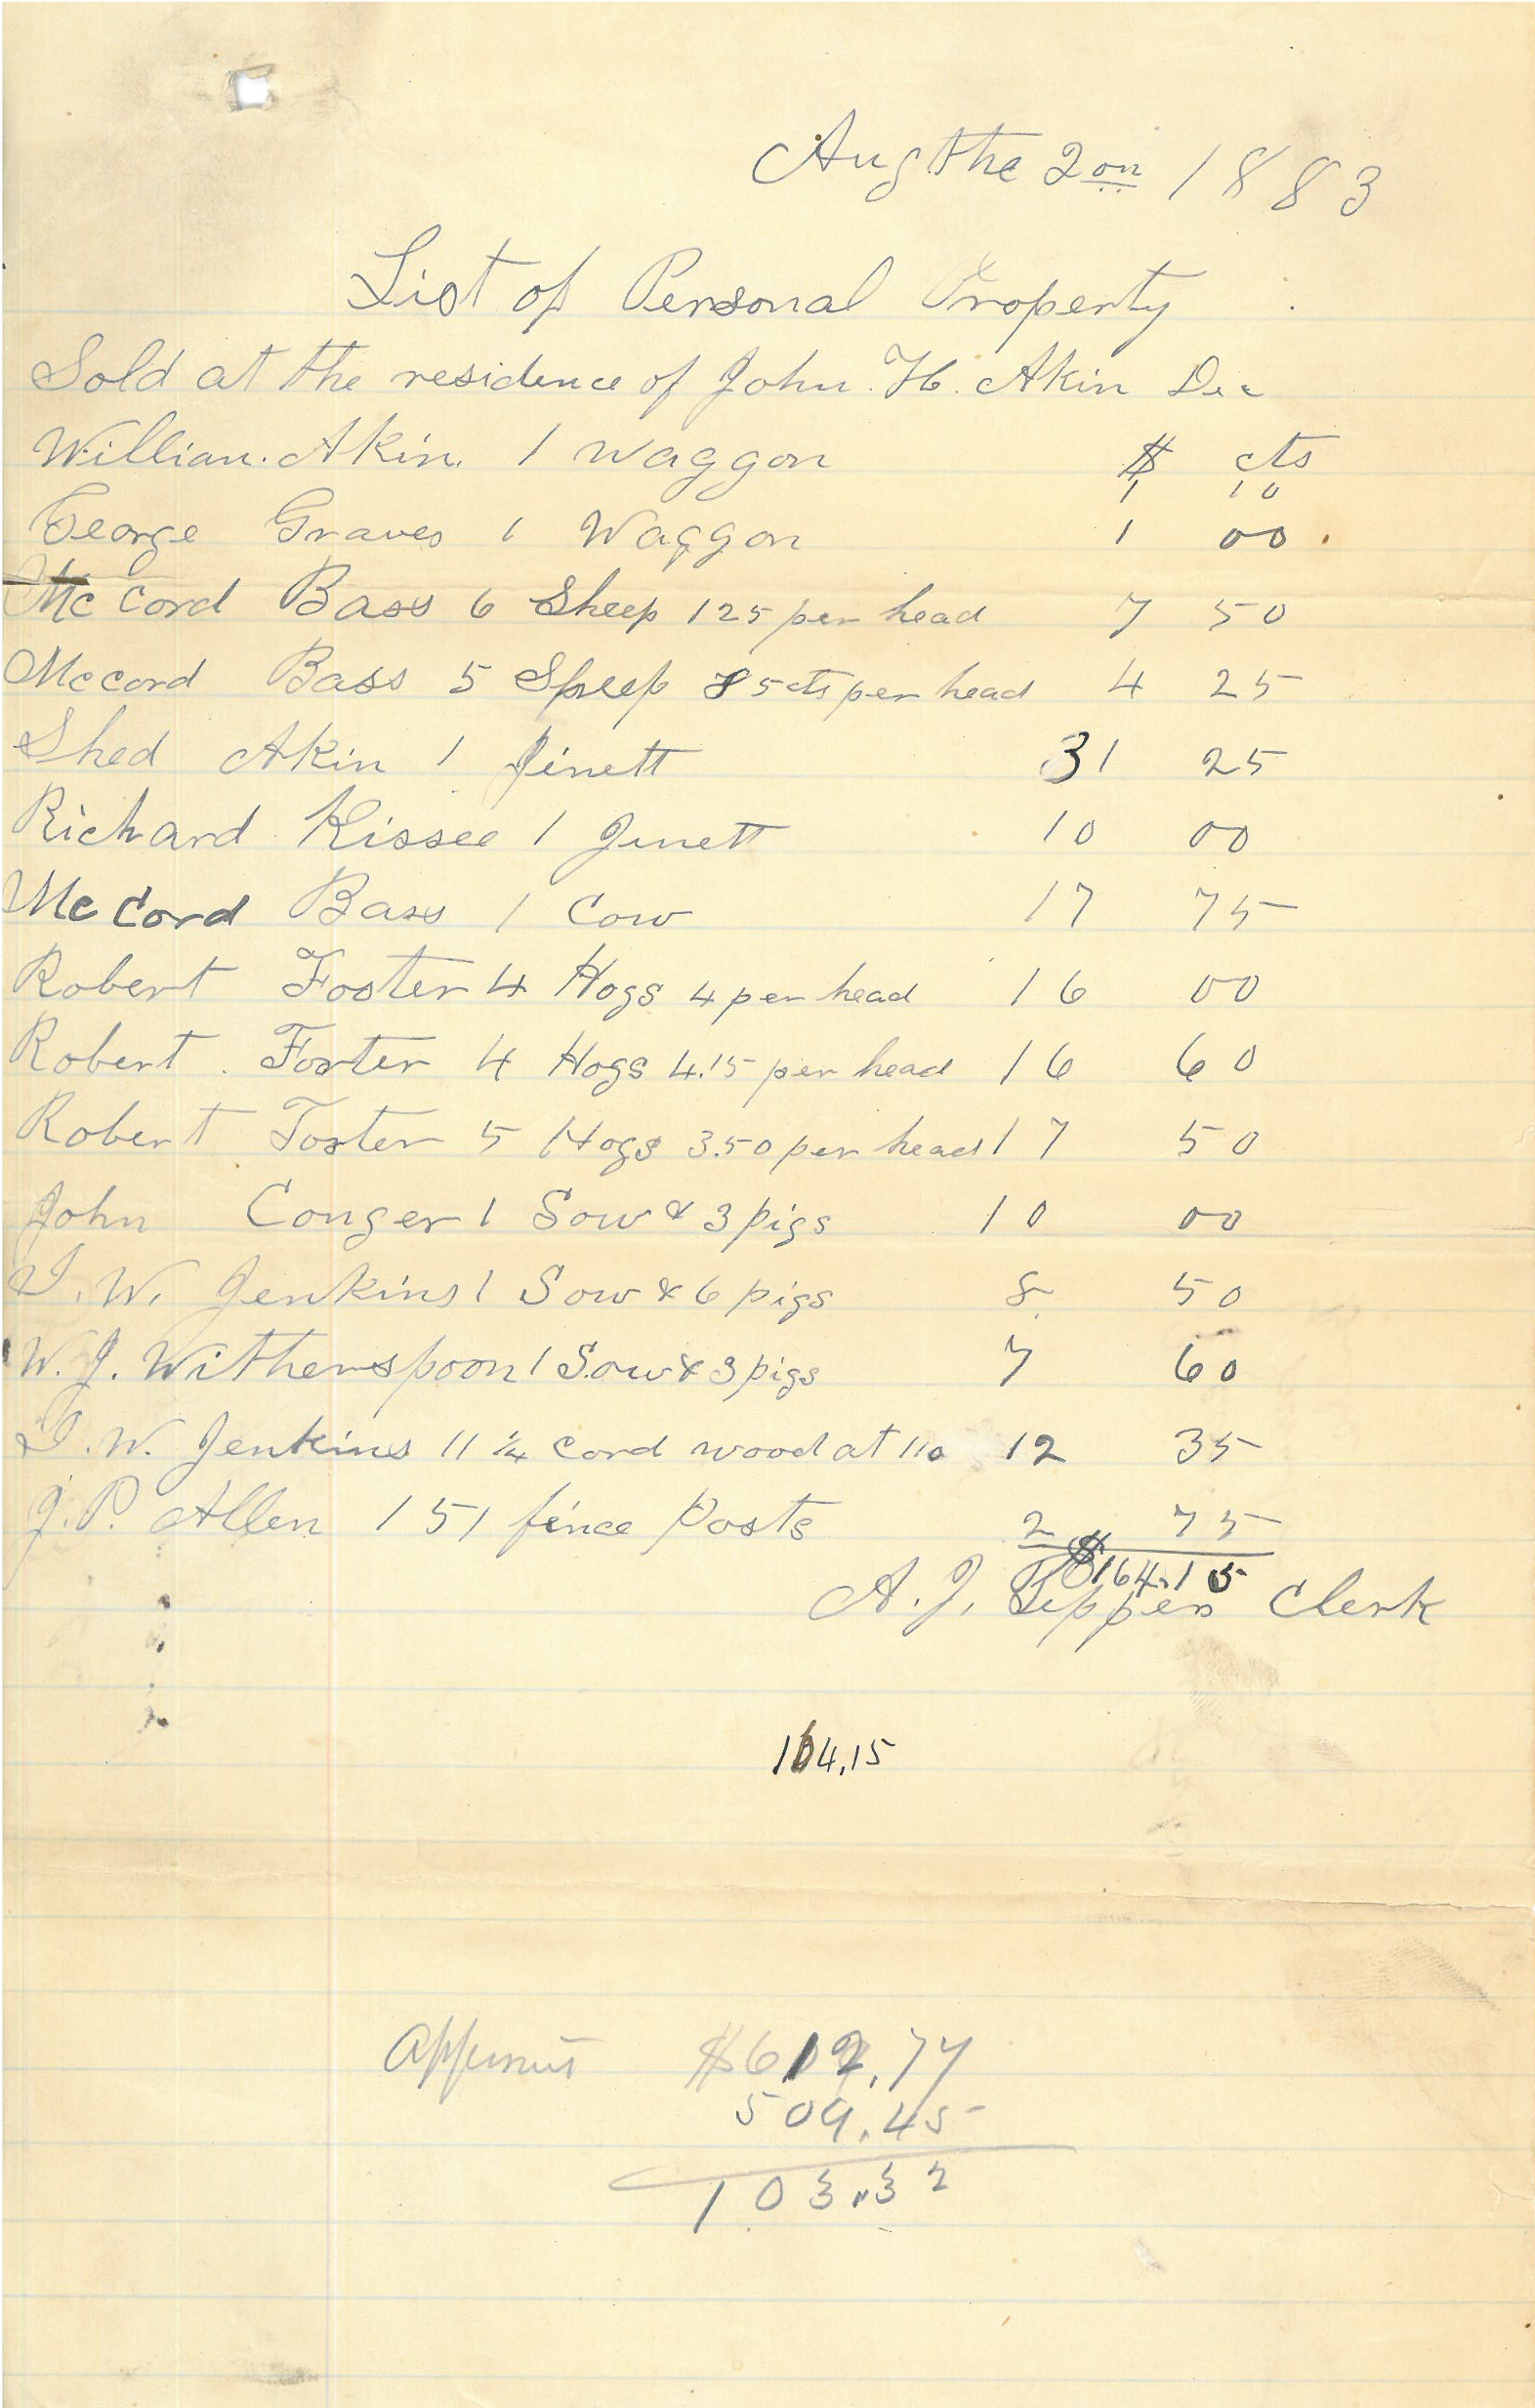 Aug the 2on 1883
List of Personal Property
Sold at the residence of John. H. Akin Dec
William. Akin. 1 Waggon $ cts
1 10
George Graves 1 Waggon 1 00
McCord Bass 6 Sheep 125 per head 7 50
Mccord Bass 5 Sheep 85 cts per head 4 25
Shed Akin 1 Jinett 31 25
Richard Kissee 1 Jinett 10 00
McCord Bass 1 Cow 17 75
Robert Foster 4 Hogs 4 per head 16 00
Robert Foster 4 Hogs 4.15 per head 16 60
Robert Foster 5 Hogs 3.50 per head 17 50
John Conger 1 Sow & 3 pigs 10 00
T. W. Jenkins 1 Sow & 6 pigs 8 50
W. J. Witherspoon 1 Sow & 3 pigs 7 60
T. W. Jenkins 11 1/4 Cord wood at 110 12 35
J. P. Allen 151 fince Posts 2 75
$164.15
A. J. Clerk
164.15
$612.77
509.45
103.32